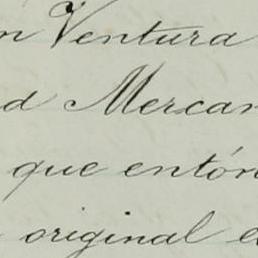 n Ventura
d Mercan
que entón
original e